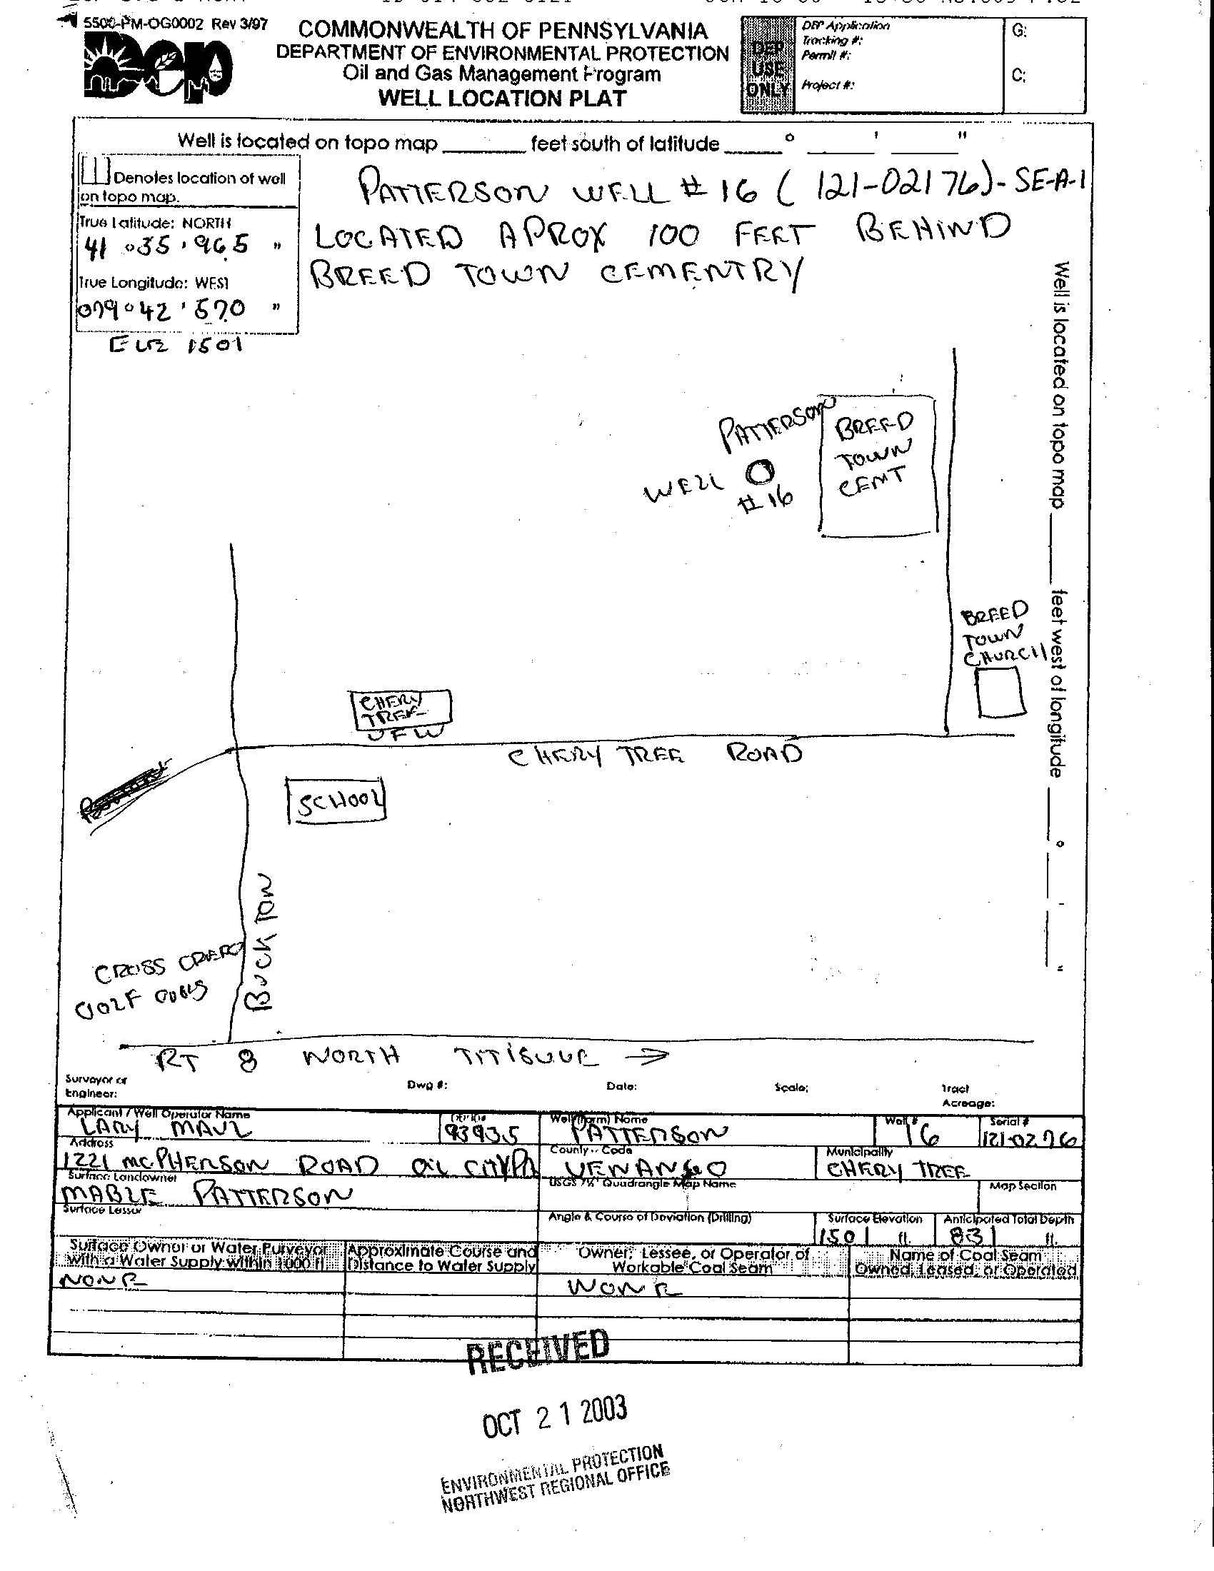 5500-PM-OG0002 Rev 3/97
COMMONWEALTH OF PENNSYLVANIA
DEPARTMENT OF ENVIRONMENTAL PROTECTION
Oil and Gas Management Program
WELL LOCATION PLAT
DEP
USE
ONLY
DEP Application
Tracking #:
Permit #:
Project #:
G:
C:
Well is located on topo map ______ feet south of latitude ______ ° ______ ' ______ "
Denotes location of well
on topo map.
True Latitude: NORTH
41 ° 35 ' 965 "
True Longitude: WEST
079 ° 42 ' 570 "
1501
PATTERSON WELL # 16 ( 121-02176)- SE-A-1
LOCATED APROX 100 FEET BEHIND
BREED TOWN CEMENTRY
Well is located on topo map ______ feet west of longitude ______ ° ______ ' ______ "
PATTERSON
WELL
#16
BREED
TOWN
CEMT
BREED
TOWN
CHURCH
CHERY
TREE
VFW
CHERY TREE ROAD
SCHOOL
BUCK TON
CROSS
GOLF
RT 8 NORTH →
Surveyor or
Engineer:
Dwg #:
Date:
Scale:
Tract
Acreage:
Applicant / Well Operator Name
LARY MAUL
93935
Well (Farm) Name
PATTERSON
Well #
16
Serial #
121-02176
Address
1221 McPHERSON ROAD OIL CITY PA
County - Code
VENANGO
Municipality
CHERY TREE
Surface Landowner
MABLE PATTERSON
USGS 7½' Quadrangle Map Name
Map Section
Surface Lessor
Angle & Course of Deviation (Drilling)
Surface Elevation
1501 ft.
Anticipated Total Depth
831 ft.
Surface Owner or Water Purveyor
with a Water Supply within 1000 ft
Approximate Course and
Distance to Water Supply
Owner, Lessee, or Operator of
Workable Coal Seam
Name of Coal Seam
Owned, Leased, or Operated
NONE
NONE
RECEIVED
OCT 21 2003
ENVIRONMENTAL PROTECTION
NORTHWEST REGIONAL OFFICE